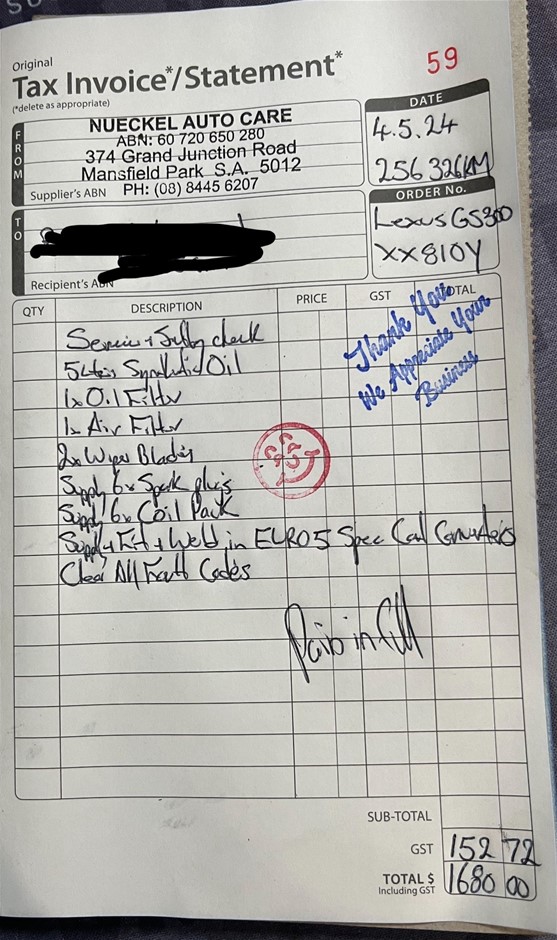 Original
Tax Invoice*/Statement*
(*delete as appropriate)
59
FROM
NUECKEL AUTO CARE
ABN: 60 720 650 280
374 Grand Junction Road
Mansfield Park S.A. 5012
Supplier's ABN PH: (08) 8445 6207
DATE
4.5.24
256 326KM
ORDER No.
Lexus GS300
XX810Y
TO
Recipient's ABN
QTY DESCRIPTION PRICE GST TOTAL
Thank You
We Appreciate Your
Business
Service + Safety check
5 Litres Synthetic Oil
1x Oil Filter
1x Air Filter
2x Wiper Blades
Supply 6x Spark plugs
Supply 6x Coil Pack
Supply + Fit + Weld in EURO 5 Spec Cat Converters
Clear All Fault Codes
Paid in Full
SUB-TOTAL
GST 152 72
TOTAL $ 1680 00
Including GST